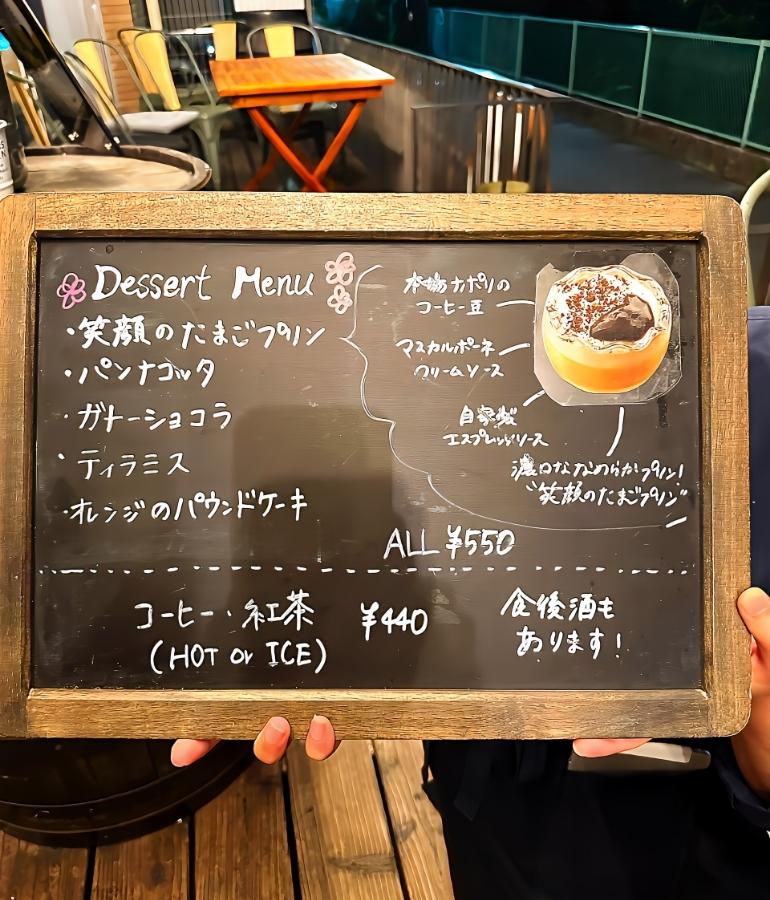 Dessert Menu
・笑顔のたまごプリン
・パンナコッタ
・ガトーショコラ
・ティラミス
・オレンジのパウンドケーキ
本場ナポリの
コーヒー豆
マスカルポーネ
クリームソース
自家製
エスプレッソソース
濃口ななめらかプリン!
"笑顔のたまごプリン"
ALL ¥550
コーヒー・紅茶 ¥440
(HOT or ICE)
食後酒も
あります!